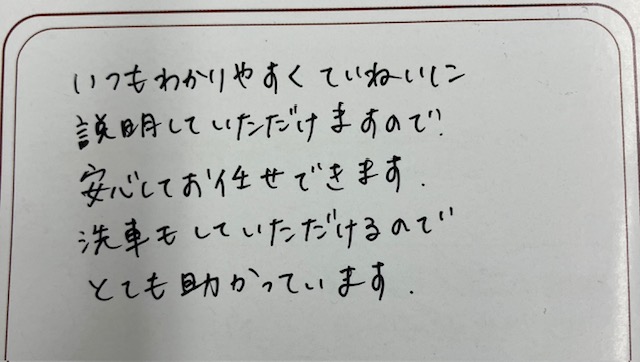 いつもわかりやすくていねいに
説明していただけますので
安心してお任せできます.
洗車もしていただけるので
とても助かっています.